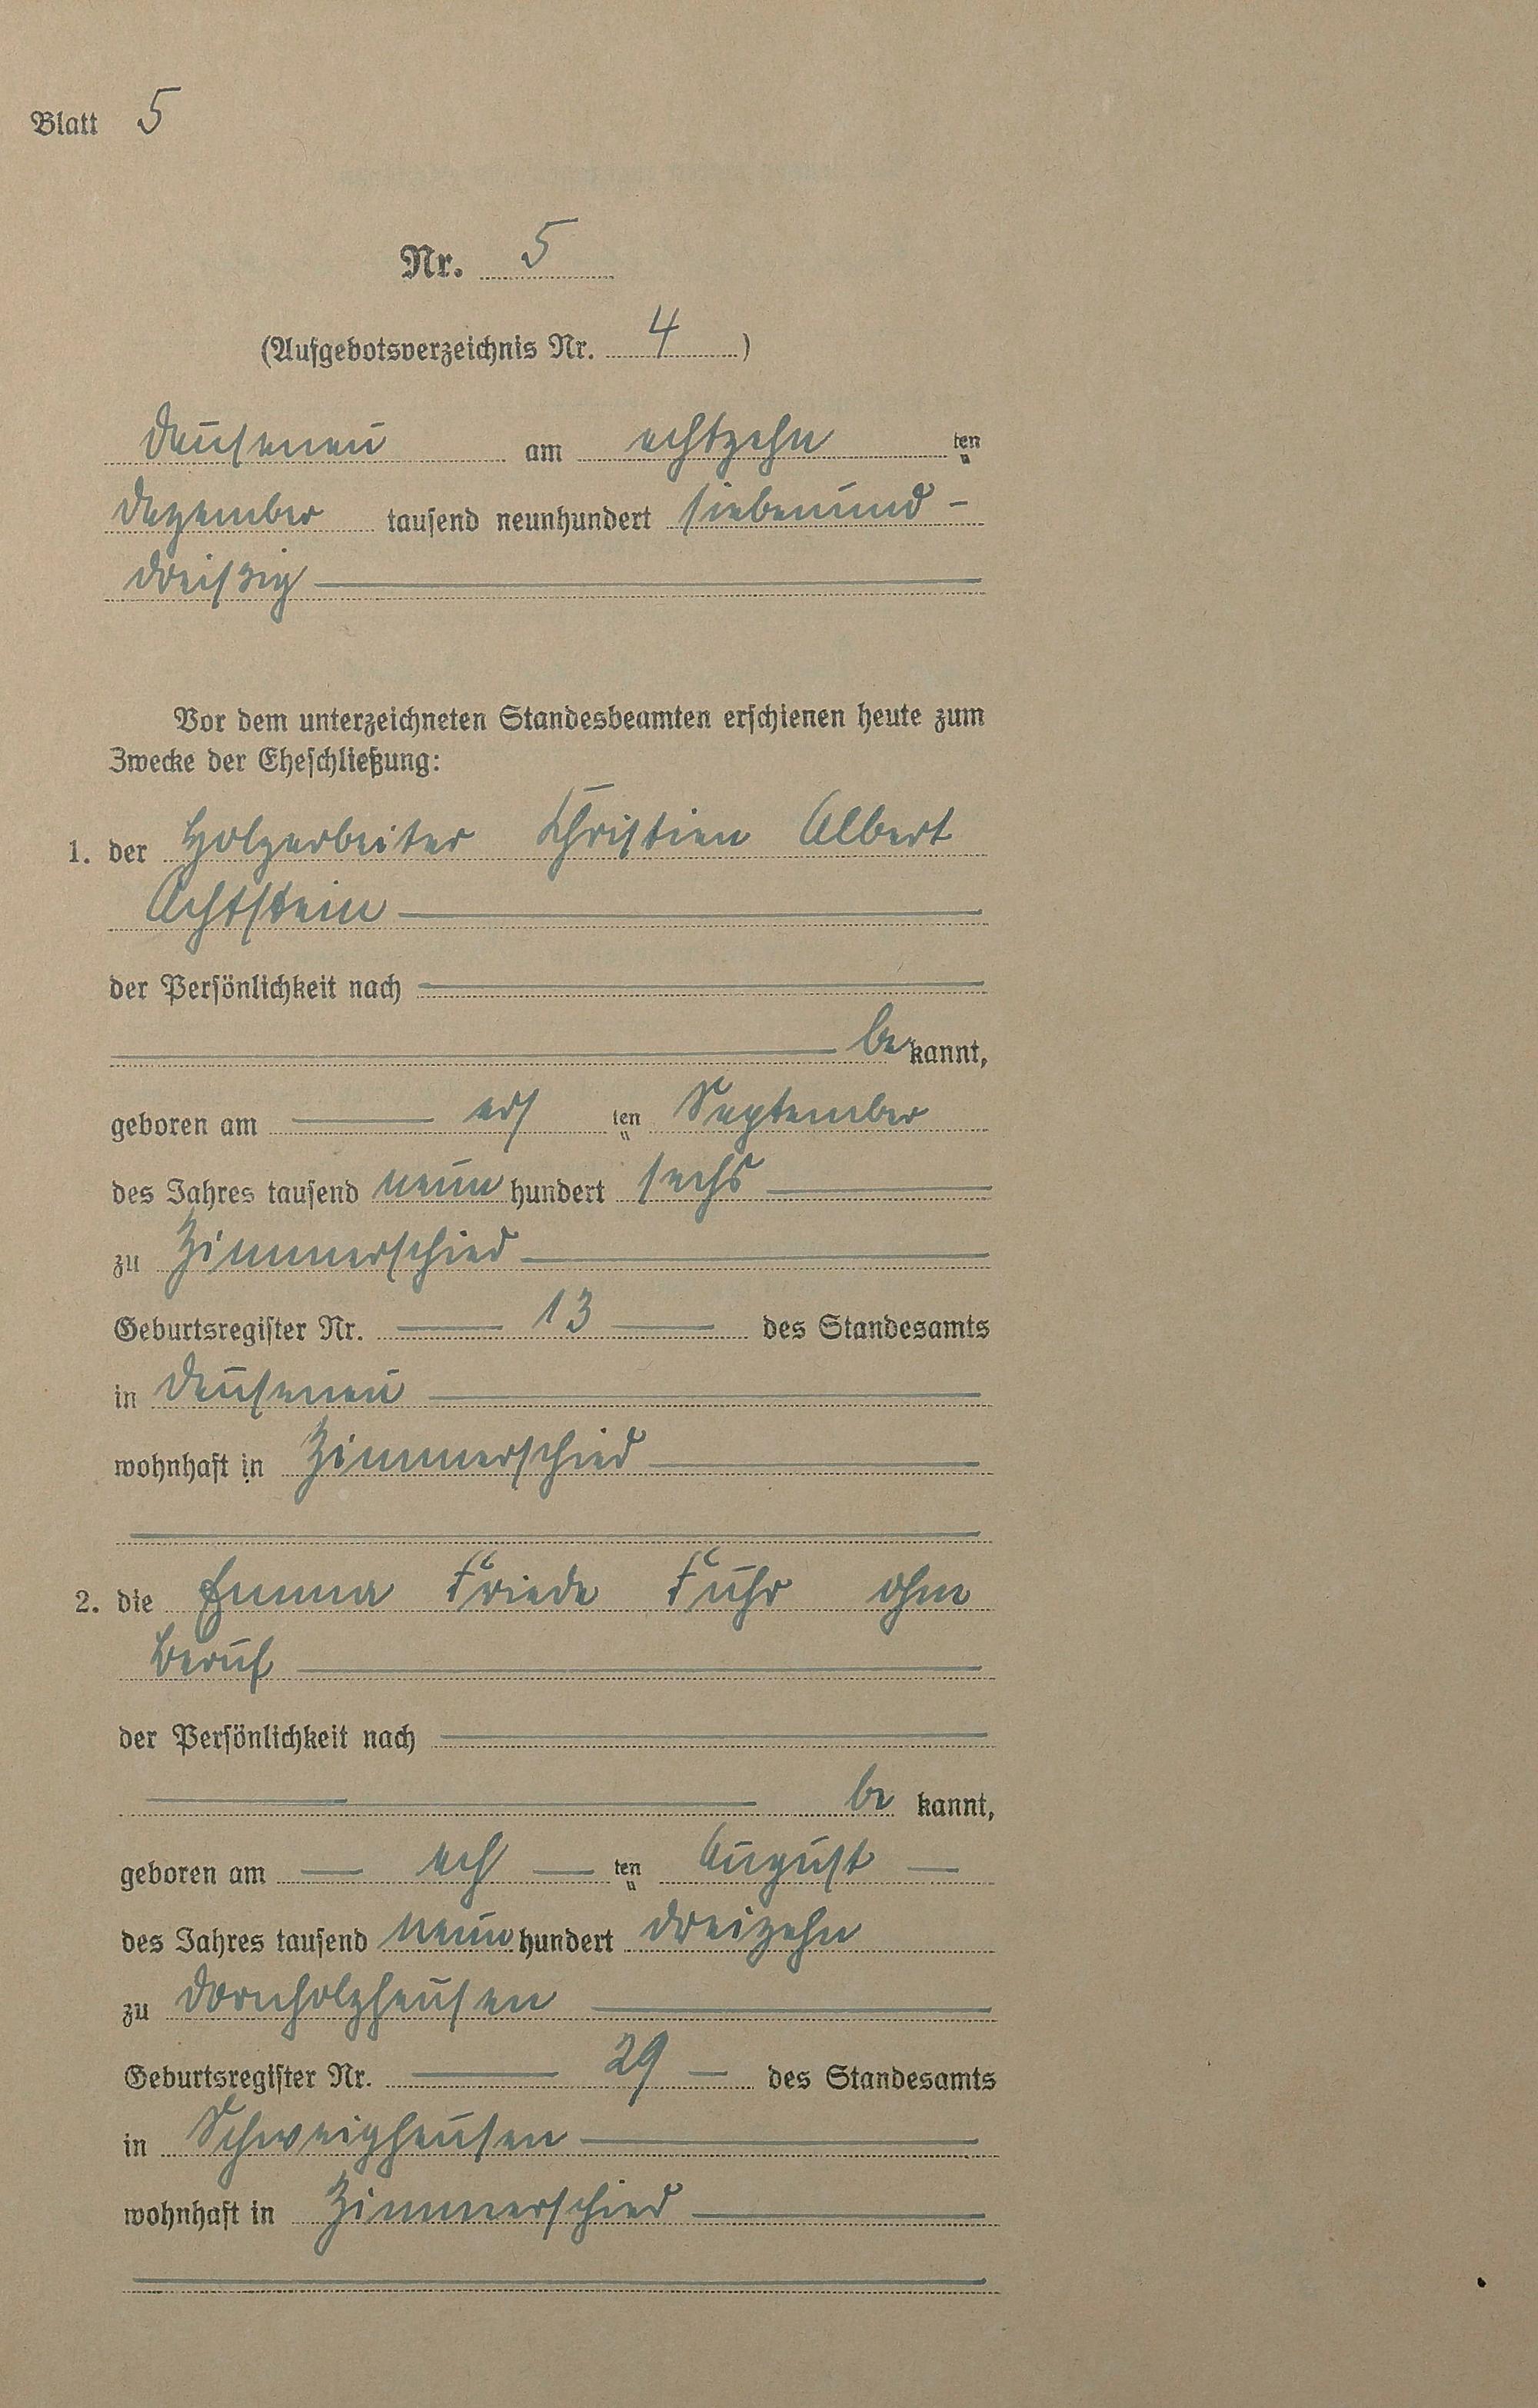 Blatt 5
Nr. 5
(Aufgebotsverzeichnis Nr. 4)
Dausenau am achtzehn ten
Dezember tausend neunhundert siebenund-
dreißig
Vor dem unterzeichneten Standesbeamten erschienen heute zum
Zwecke der Eheschließung:
1. der Holzarbeiter Christian Albert
Achtstein
der Persönlichkeit nach
be kannt,
geboren am ers ten September
des Jahres tausend neun hundert sechs
zu Zimmerschied
Geburtsregister Nr. 13 des Standesamts
in Dausenau
wohnhaft in Zimmerschied
2. die Emma Frieda Fuhr ohne
Beruf
der Persönlichkeit nach
be kannt,
geboren am ten August
des Jahres tausend neun hundert dreizehn
zu Dornholzhausen
Geburtsregister Nr. 29 des Standesamts
in Schweighausen
wohnhaft in Zimmerschied